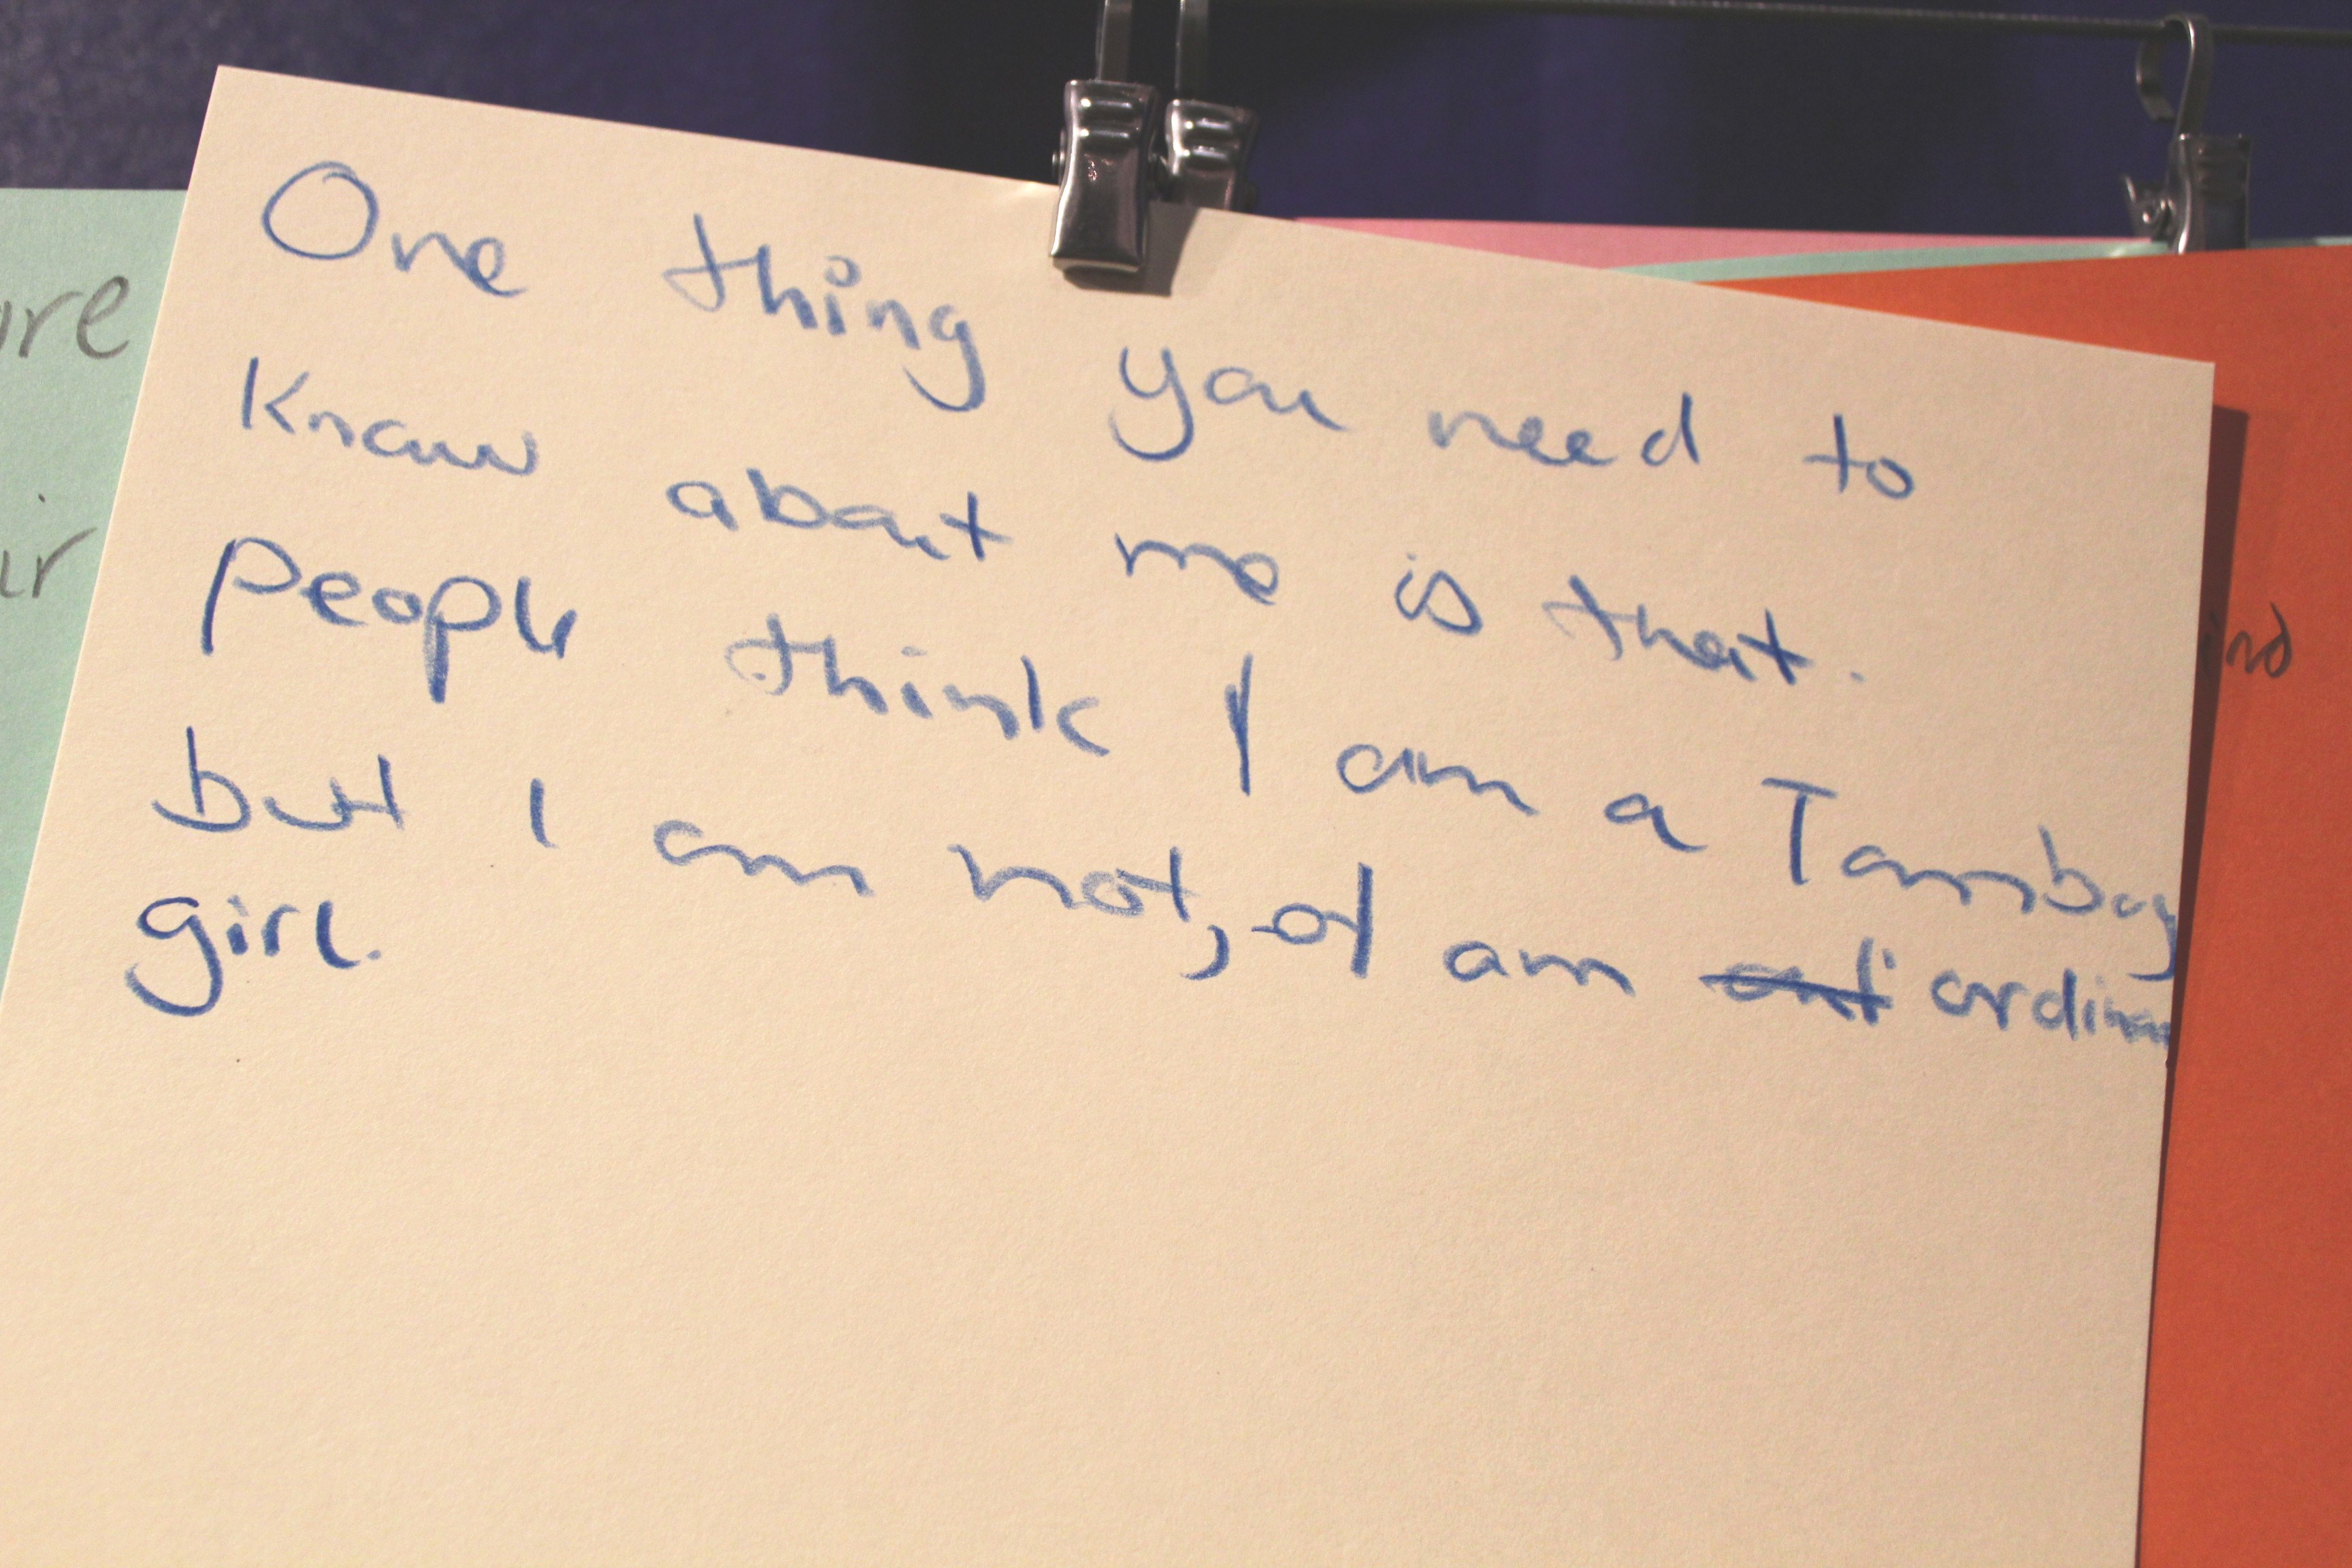 One thing you need to
know about me is that.
people think I am a Tomboy
but I am not, I am ordina
girl.
ure
ur
ind